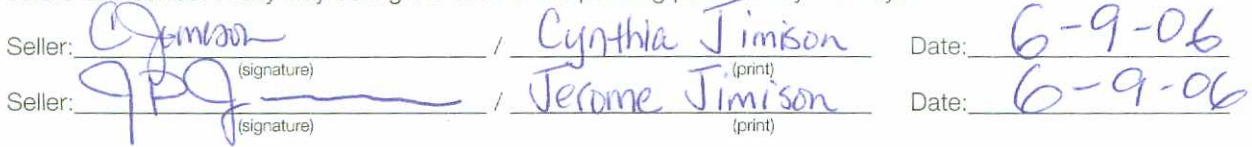 Seller: C Jimison / Cynthia Jimison Date: 6-9-06
(signature) (print)
Seller: JPJ / Jerome Jimison Date: 6-9-06
(signature) (print)